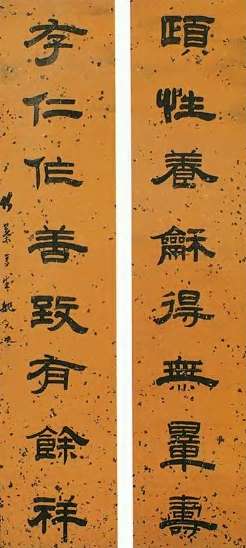 頤性養龢得無量壽
存仁作善致有餘祥